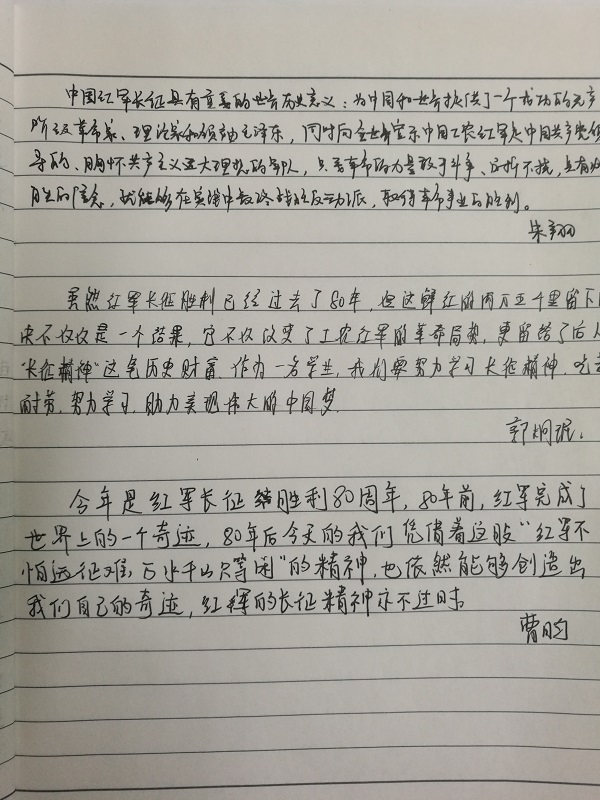 中国红军长征具有重要的世界历史意义：为中国和世界提供了一个成功的无产
阶级革命家、理论家和领袖毛泽东，同时向全世界宣示中国工农红军是中国共产党领
导的、胸怀共产主义远大理想的军队，只要革命的力量敢于斗争、百折不挠，具有必
胜的信念，就能够在实践中最终战胜反动派，取得革命事业的胜利。
朱翔
虽然红军长征胜利已经过去了80年，但这鲜红的两万五千里留下的
决不仅仅是一个结果，它不仅改变了工农红军的革命局势，更留给了后人
"长征精神"这笔历史财富。作为一名学生，我们要努力学习长征精神，吃苦
耐劳，努力学习，助力实现伟大的中国梦。
郭炯珉。
今年是红军长征结胜利80周年，80年前，红军完成了
世界上的一个奇迹，80年后今天的我们凭借着这股"红军不
怕远征难，万水千山只等闲"的精神，也依然能够创造出
我们自己的奇迹，红辉的长征精神亦不过时。
曹昀